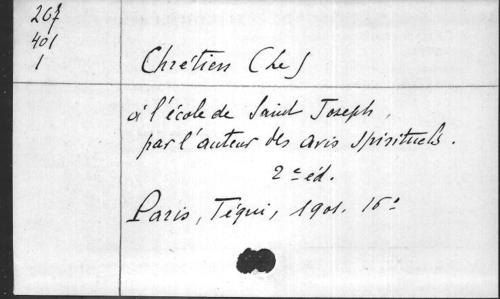 267
401
1
Chrétien (Le)
à l'école de Saint Joseph,
par l'auteur des avis spirituels.
2e éd.
Paris, Téqui, 1901. 16°